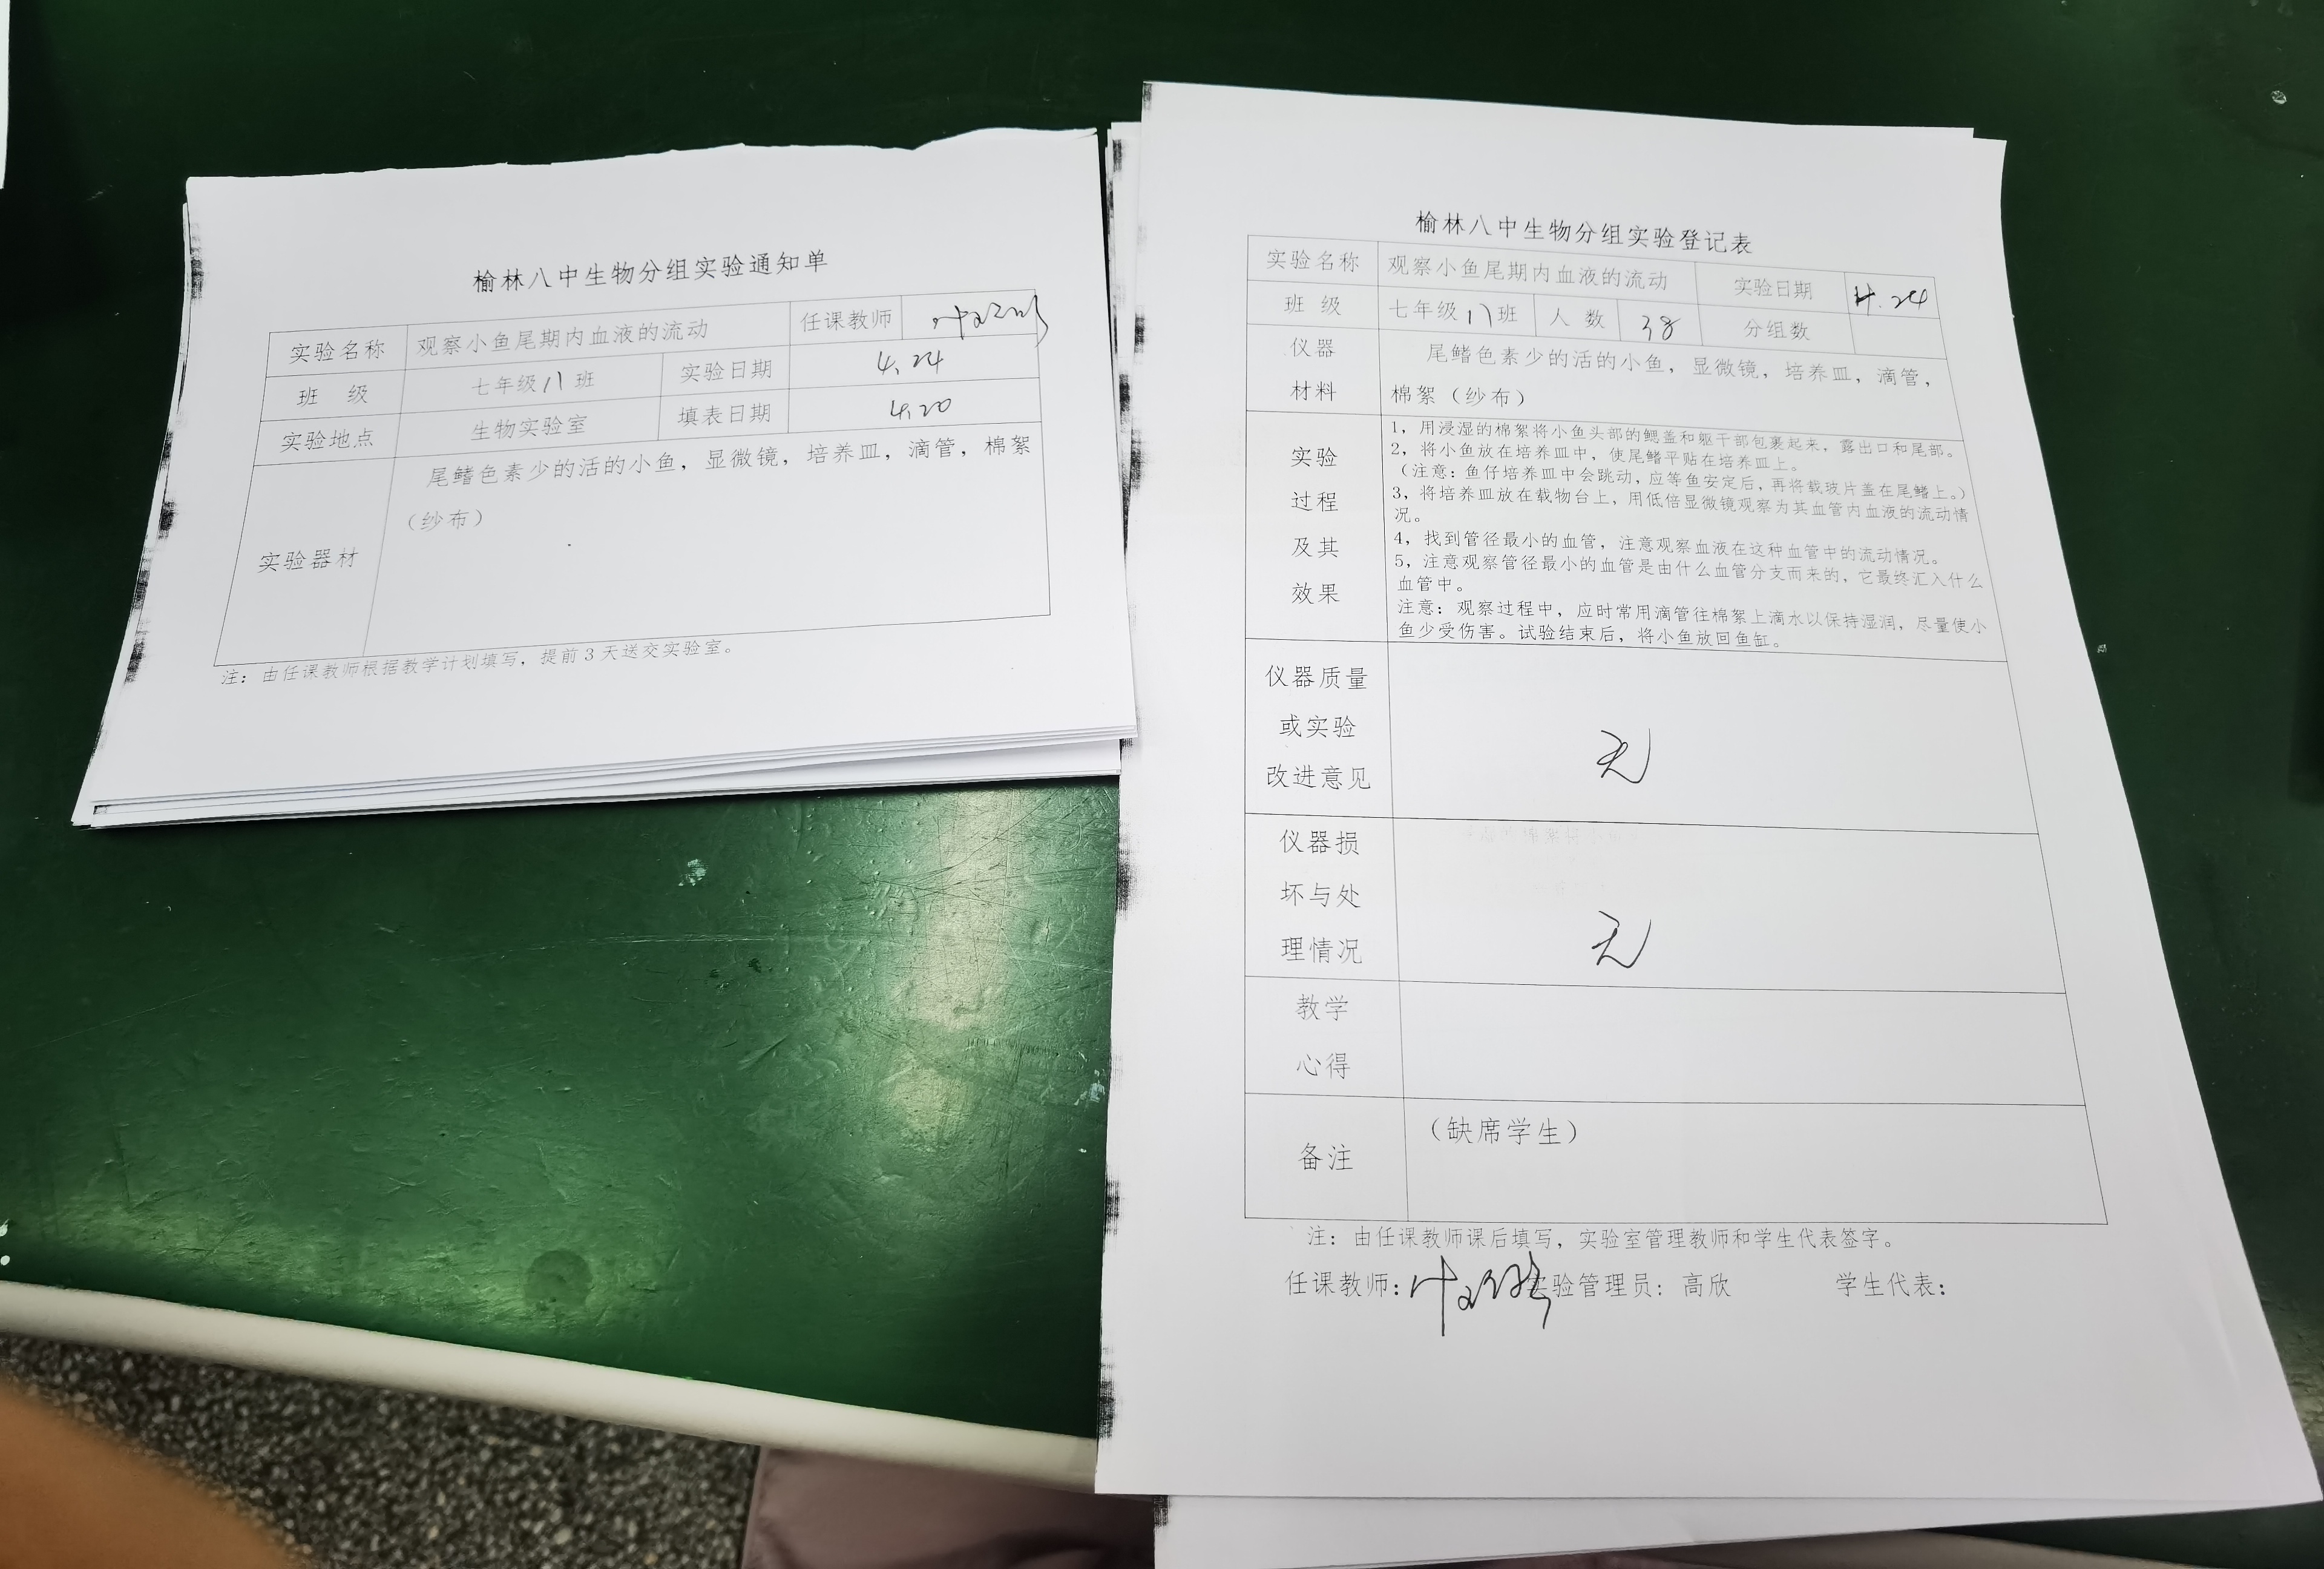 榆林八中生物分组实验通知单
实验名称 观察小鱼尾期内血液的流动 任课教师
班 级 七年级八班 实验日期 4.24
实验地点 生物实验室 填表日期 4.20
实验器材 尾鳍色素少的活的小鱼，显微镜，培养皿，滴管，棉絮
（纱布）
注：由任课教师根据教学计划填写，提前3天送交实验室。
榆林八中生物分组实验登记表
实验名称 观察小鱼尾期内血液的流动 实验日期 4.24
班 级 七年级八班 人 数 38 分组数
仪器 材料 尾鳍色素少的活的小鱼，显微镜，培养皿，滴管，
棉絮（纱布）
实验
过程
及其
效果
1，用浸湿的棉絮将小鱼头部的鳃盖和躯干部包裹起来，露出口和尾部。
2，将小鱼放在培养皿中，使尾鳍平贴在培养皿上。
（注意：鱼仔培养皿中会跳动，应等鱼安定后，再将载玻片盖在尾鳍上。）
3，将培养皿放在载物台上，用低倍显微镜观察为其血管内血液的流动情
况。
4，找到管径最小的血管，注意观察血液在这种血管中的流动情况。
5，注意观察管径最小的血管是由什么血管分支而来的，它最终汇入什么
血管中。
注意：观察过程中，应时常用滴管往棉絮上滴水以保持湿润，尽量使小
鱼少受伤害。试验结束后，将小鱼放回鱼缸。
仪器质量
或实验
改进意见
无
仪器损
坏与处
理情况
无
教学
心得
备注 （缺席学生）
注：由任课教师课后填写，实验室管理教师和学生代表签字。
任课教师： 实验管理员：高欣 学生代表：